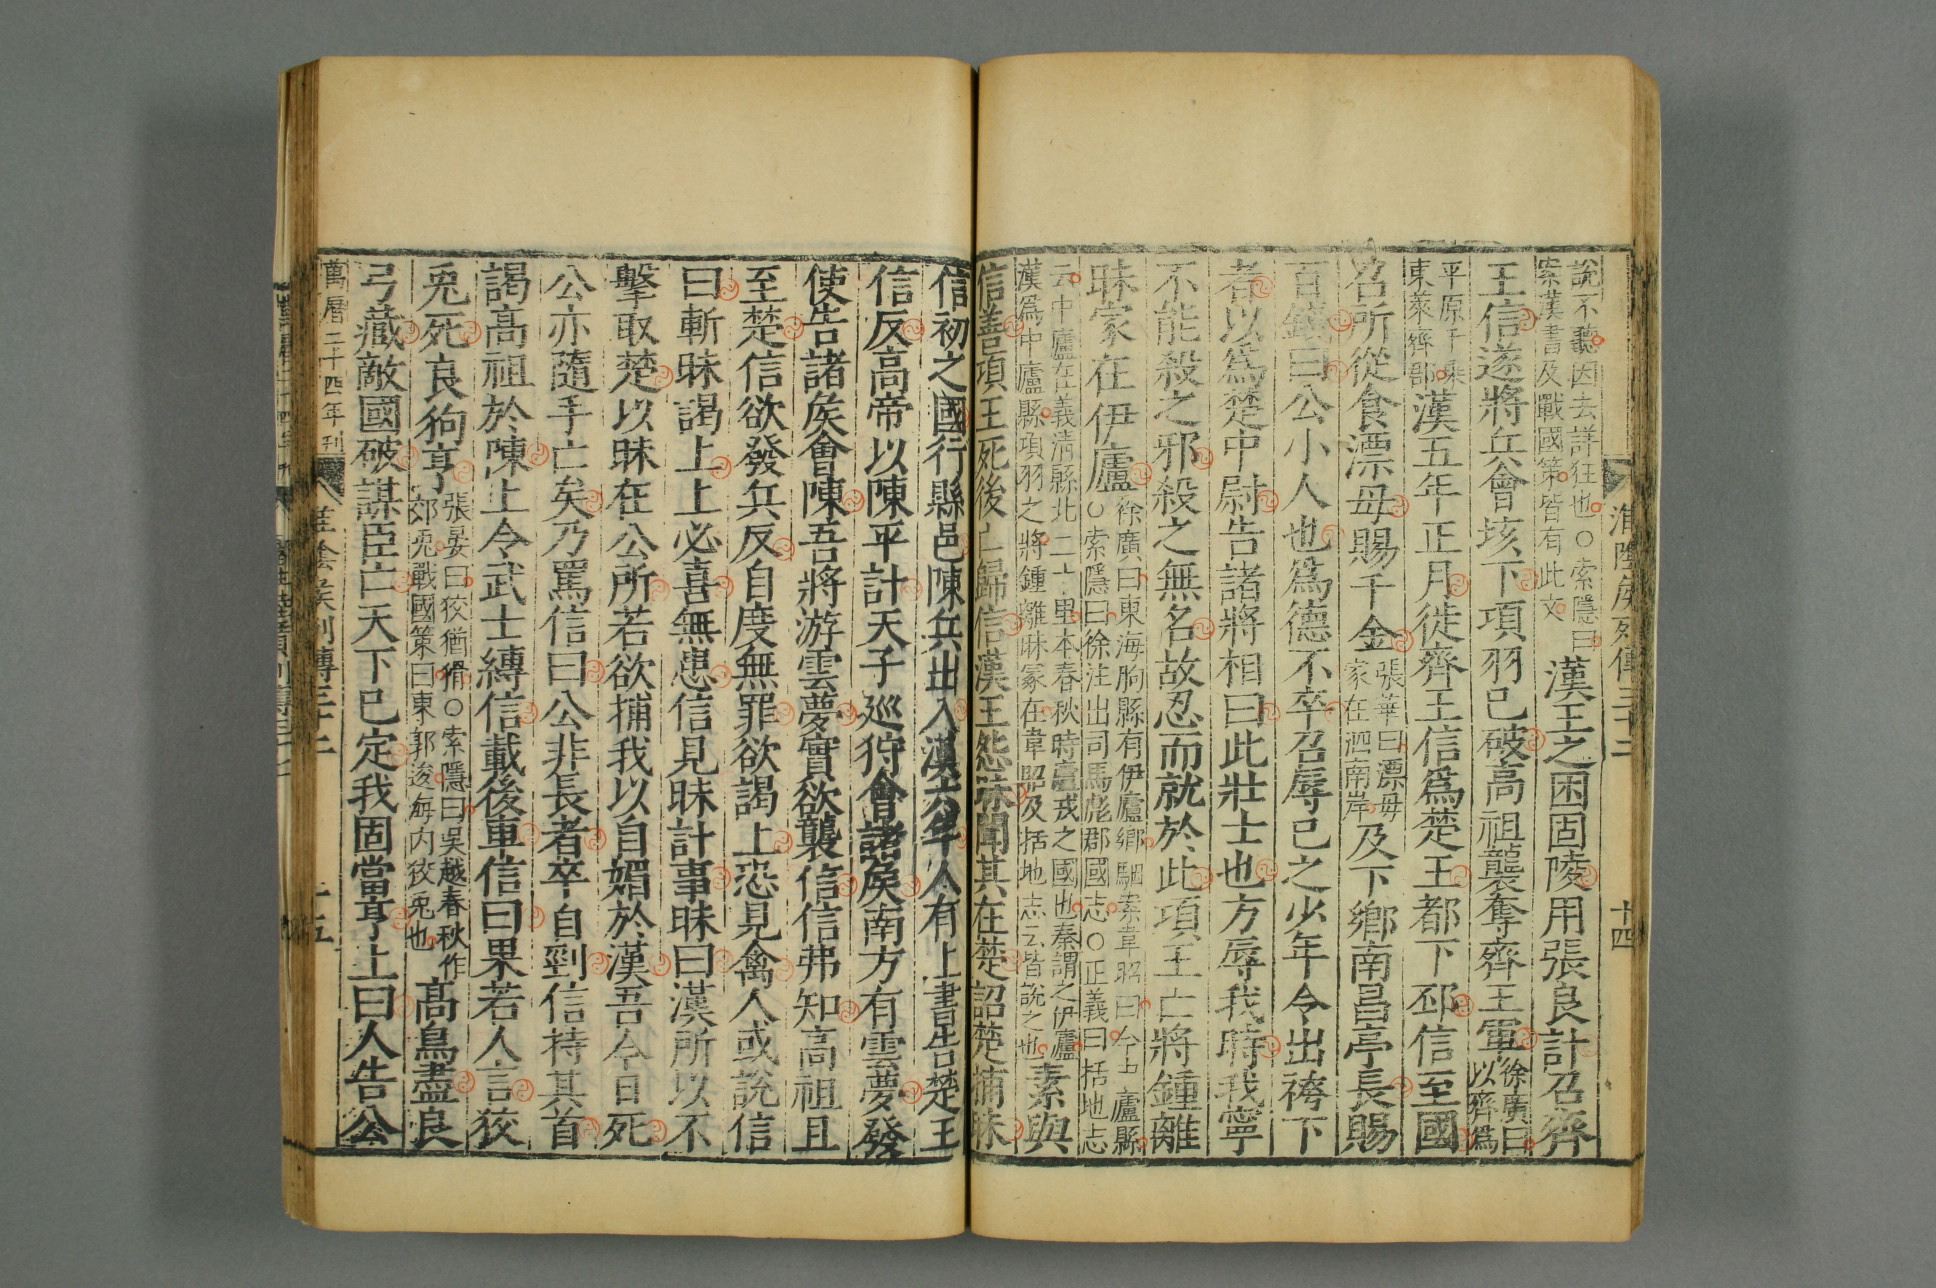 淮陰侯列傳三十二 十四
說不聽因去詳狂也○索隱曰
案漢書及戰國策皆有此文
漢王之困固陵用張良計召齊
王信遂將兵會垓下項羽已破高祖襲奪齊王軍
徐廣曰
以齊爲
平原千乘
東萊齊郡
漢五年正月徙齊王信爲楚王都下邳信至國
召所從食漂母賜千金
張華曰漂母
家在泗南岸
及下鄉南昌亭長賜
百錢曰公小人也爲德不卒召辱己之少年令出袴下
者以爲楚中尉告諸將相曰此壯士也方辱我時我寧
不能殺之邪殺之無名故忍而就於此項王亡將鍾離
昧家在伊廬
徐廣曰東海朐縣有伊廬鄉駰案韋昭曰今中廬縣
○索隱曰徐注出司馬彪郡國志○正義曰括地志
云中廬在義清縣北二十里本春秋時廬戎之國也秦謂之伊廬
漢爲中廬縣項羽之將鍾離昧冢在韋昭及括地志云皆說之也
素與
信善項王死後亡歸信漢王怨昧聞其在楚詔楚捕昧
信初之國行縣邑陳兵出入漢六年人有上書告楚王
信反高帝以陳平計天子巡狩會諸侯南方有雲夢發
使告諸侯會陳吾將游雲夢實欲襲信信弗知高祖且
至楚信欲發兵反自度無罪欲謁上恐見禽人或說信
曰斬昧謁上上必喜無患信見昧計事昧曰漢所以不
擊取楚以昧在公所若欲捕我以自媚於漢吾今日死
公亦隨手亡矣乃罵信曰公非長者卒自剄信持其首
謁高祖於陳上令武士縛信載後車信曰果若人言狡
兎死良狗亨
張晏曰狡猶猾○索隱曰吳越春秋作
郊兎戰國策曰東郭逡海內狡兎也
高鳥盡良
弓藏敵國破謀臣亡天下已定我固當亨上曰人告公
萬曆二十四年刊 淮陰侯列傳三十二 十五